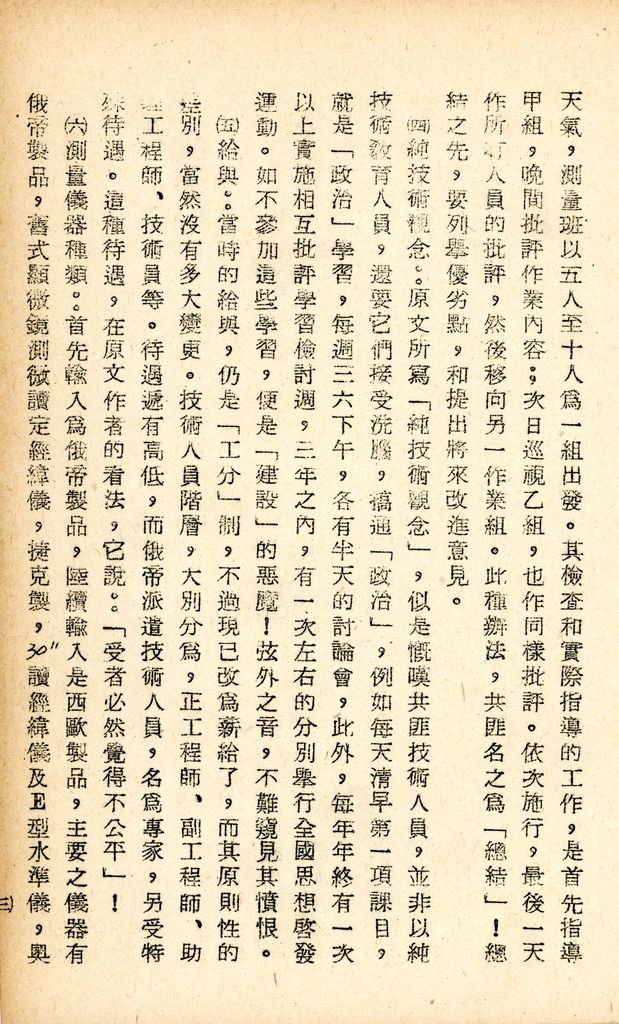 天氣，測量班以五人至十人爲一組出發。其檢查和實際指導的工作，是首先指導
甲組，晚間批評作業內容；次日巡視乙組，也作同樣批評。依次施行，最後一天
作所有人員的批評，然後移向另一作業組。此種辦法，共匪名之爲「總結」！總
結之先，要列舉優劣點，和提出將來改進意見。
㈣純技術觀念：原文所寫「純技術觀念」，似是慨嘆共匪技術人員，並非以純
技術敎育人員，還要它們接受洗腦，搞通「政治」，例如每天清早第一項課目，
就是「政治」學習，每週三六下午，各有半天的討論會，此外，每年年終有一次
以上實施相互批評學習檢討週，三年之內，有一次左右的分別舉行全國思想啓發
運動。如不參加這些學習，便是「建設」的惡魔！弦外之音，不難窺見其憤恨。
㈤給與：當時的給與，仍是「工分」制，不過現已改爲薪給了，而其原則性的
差別，當然沒有多大變更。技術人員階層，大別分爲，正工程師、副工程師、助
理工程師、技術員等。待遇遞有高低，而俄帝派遣技術人員，名爲專家，另受特
殊待遇。這種待遇，在原文作者的看法，它說：「受者必然覺得不公平」！
㈥測量儀器種類：首先輸入爲俄帝製品，陸續輸入是西歐製品，主要之儀器有
俄帝製品，舊式顯微鏡測微讀定經緯儀，捷克製，30"讀經緯儀及E型水準儀，奧
三